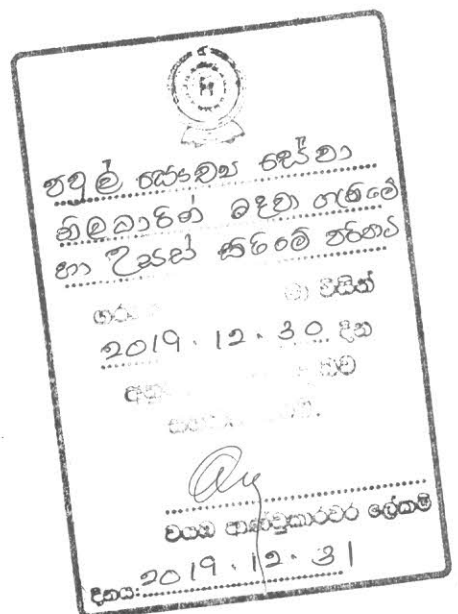 පවුල් සෞඛ්‍ය සේවා
නිලධාරින් බඳවා ගැනීමේ
හා උසස් කිරීමේ පරිපාටි
ගරු විසින්
2019.12.30 දින
බව
වයඹ ආණ්ඩුකාරවර ලේකම්
දිනය: 2019.12.31